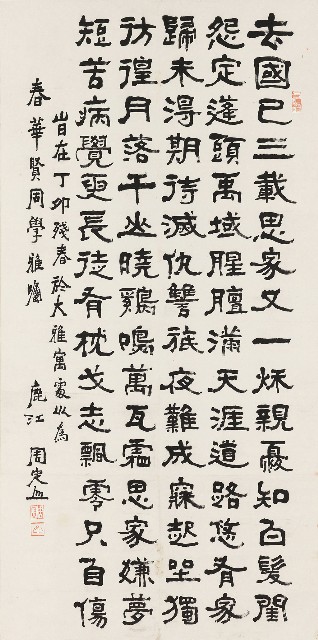 去國已三載思家又一秌親憂知白髮閨
怨定蓬頭禹域腥膻滿天涯道路悠有家
歸未得期待滅仇讐祗夜難成寐起坐獨
彷徨月落千山曉鷄鳴萬瓦霜思家嫌夢
短苦病覺更長徒有枕戈志飄零只自傷
旹在丁卯殘春於大雅寓處以為
春華賢周學雅囑 鹿江 周定山